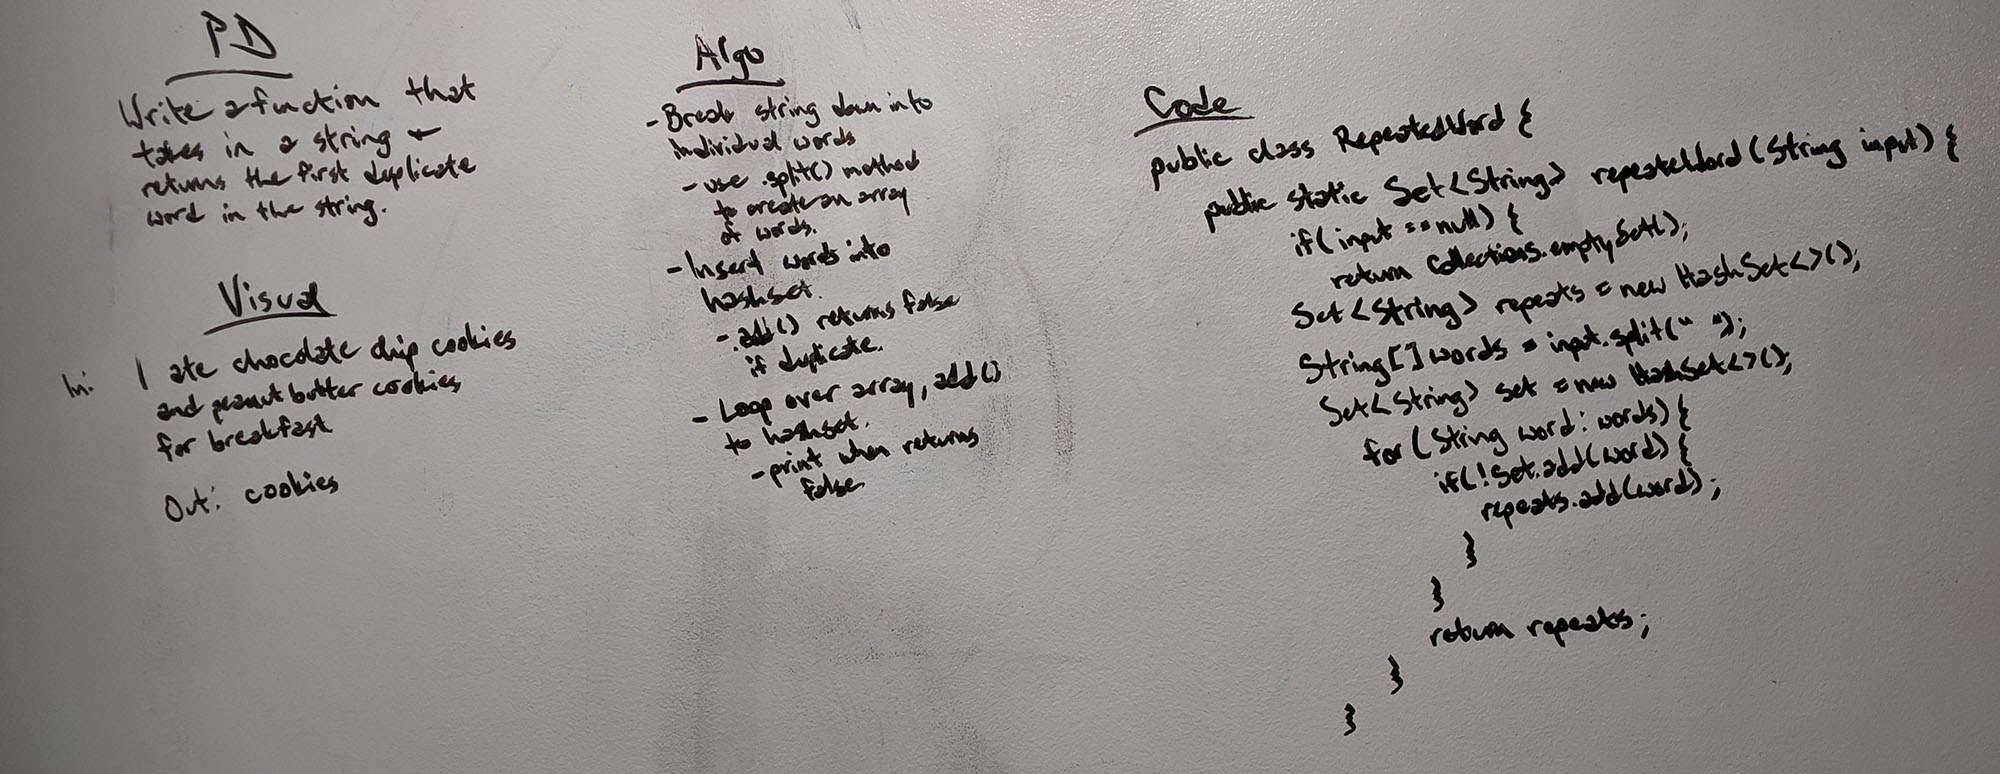 PD
Write a function that
takes in a string &
returns the first duplicate
word in the string.
Visual
In: I ate chocolate chip cookies
and peanut butter cookies
for breakfast
Out: cookies
Algo
- Break string down into
individual words
- use .split() method
to create an array
of words.
- Insert words into
hashset.
- .add() returns false
if duplicate.
- Loop over array, add()
to hashset.
- print when returns
false.
Code
public class RepeatedWord {
public static Set<String> repeateWord(String input) {
if(input == null) {
return Collections.emptySet();
Set<String> repeats = new HashSet<>();
String[] words = input.split(" ");
Set<String> set = new HashSet<>();
for(String word: words) {
if(!set.add(word) {
repeats.add(word);
}
}
return repeats;
}
}